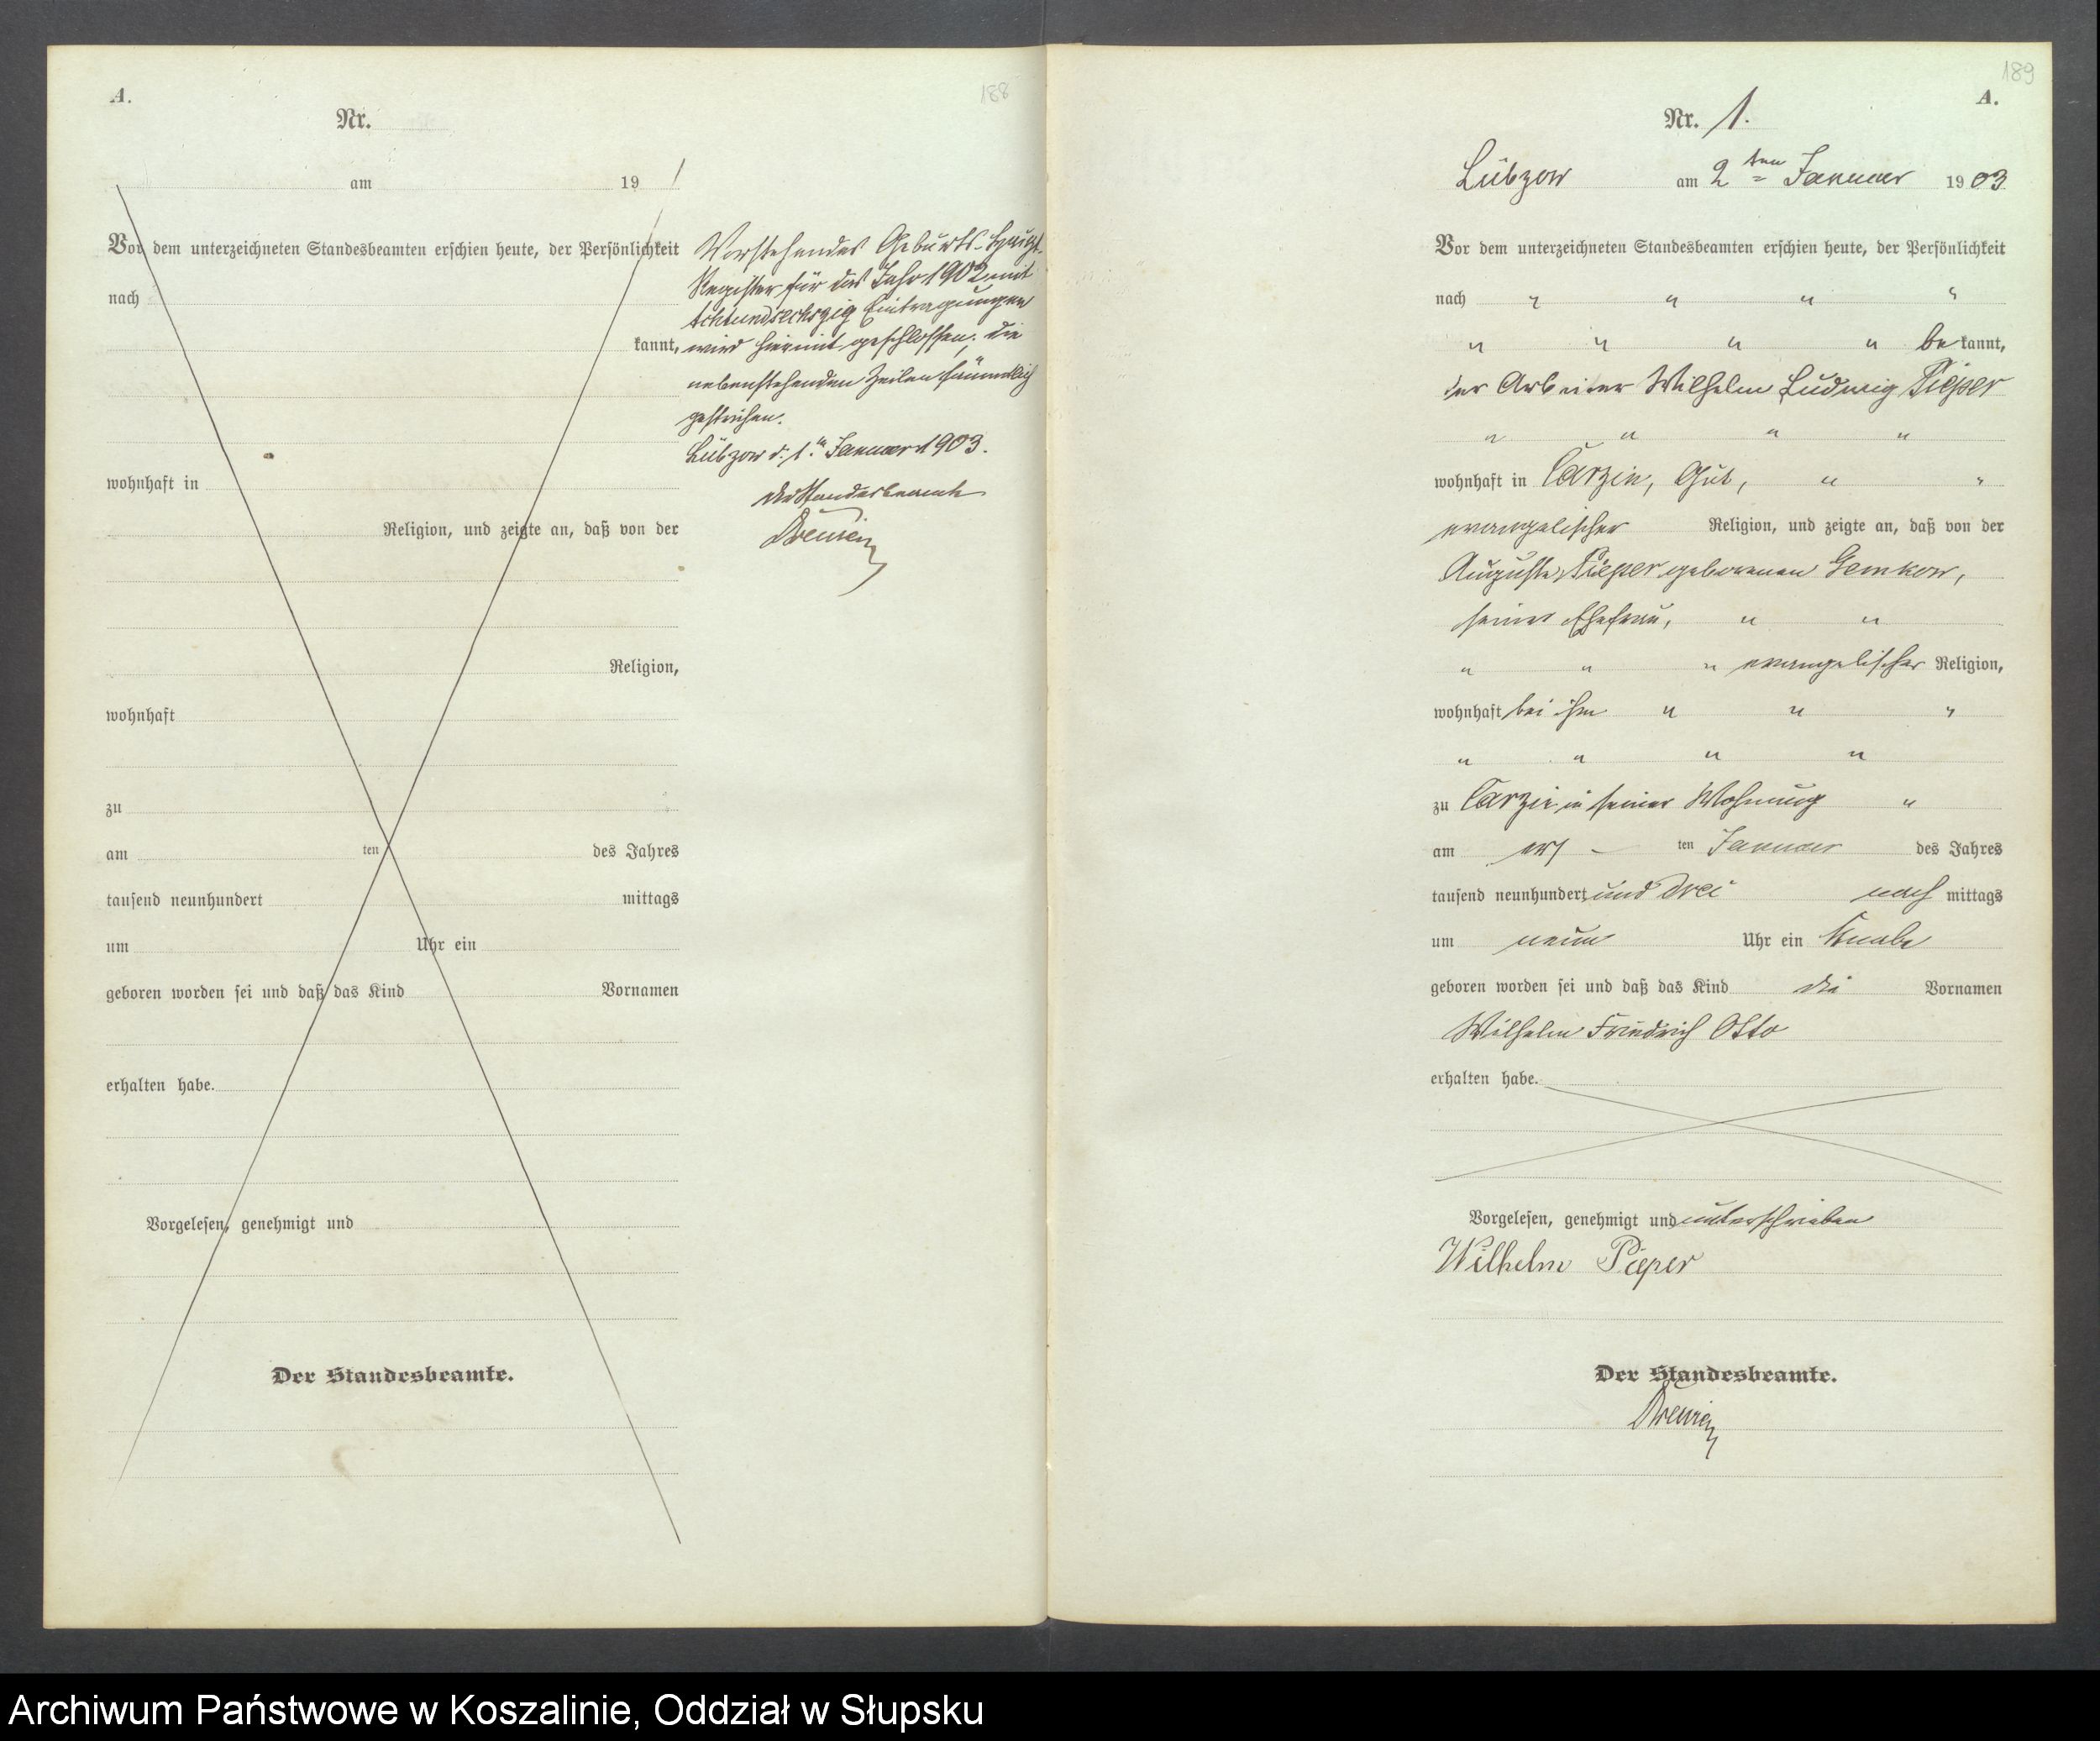 188
A.
Nr.
am 19
Vor dem unterzeichneten Standesbeamten erschien heute, der Persönlichkeit
nach
kannt,
wohnhaft in
Religion, und zeigte an, daß von der
Religion,
wohnhaft
zu
am ten des Jahres
tausend neunhundert mittags
um Uhr ein
geboren worden sei und daß das Kind Vornamen
erhalten habe.
Vorgelesen, genehmigt und
Der Standesbeamte.
Vorstehendes Geburts-Haupt-
Register für das Jahr 1902 mit
Achtundsechszig Eintragungen
wird hiermit geschlossen. Die
nebenstehenden Zeilen sämmtlich
gestrichen.
Lübzow d. 1ten Januar 1903.
Der Standesbeamte
189
A.
Nr. 1.
Lübzow am 2ten Januar 1903
Vor dem unterzeichneten Standesbeamten erschien heute, der Persönlichkeit
nach " " " "
" " " " be kannt,
der Arbeiter Wilhelm Ludwig Pieper
" " " "
wohnhaft in Carzin, Gut, " "
evangelischer Religion, und zeigte an, daß von der
Auguste Pieper geborenen Gemkow,
seiner Ehefrau, " "
" " " evangelischer Religion,
wohnhaft bei ihm " " "
" " " "
zu Carzin in seiner Wohnung "
am ers ten Januar des Jahres
tausend neunhundert und drei nach mittags
um neun Uhr ein Knabe
geboren worden sei und daß das Kind die Vornamen
Wilhelm Friedrich Otto
erhalten habe.
Vorgelesen, genehmigt und unterschrieben
Wilhelm Pieper
Der Standesbeamte.
Archiwum Państwowe w Koszalinie, Oddział w Słupsku